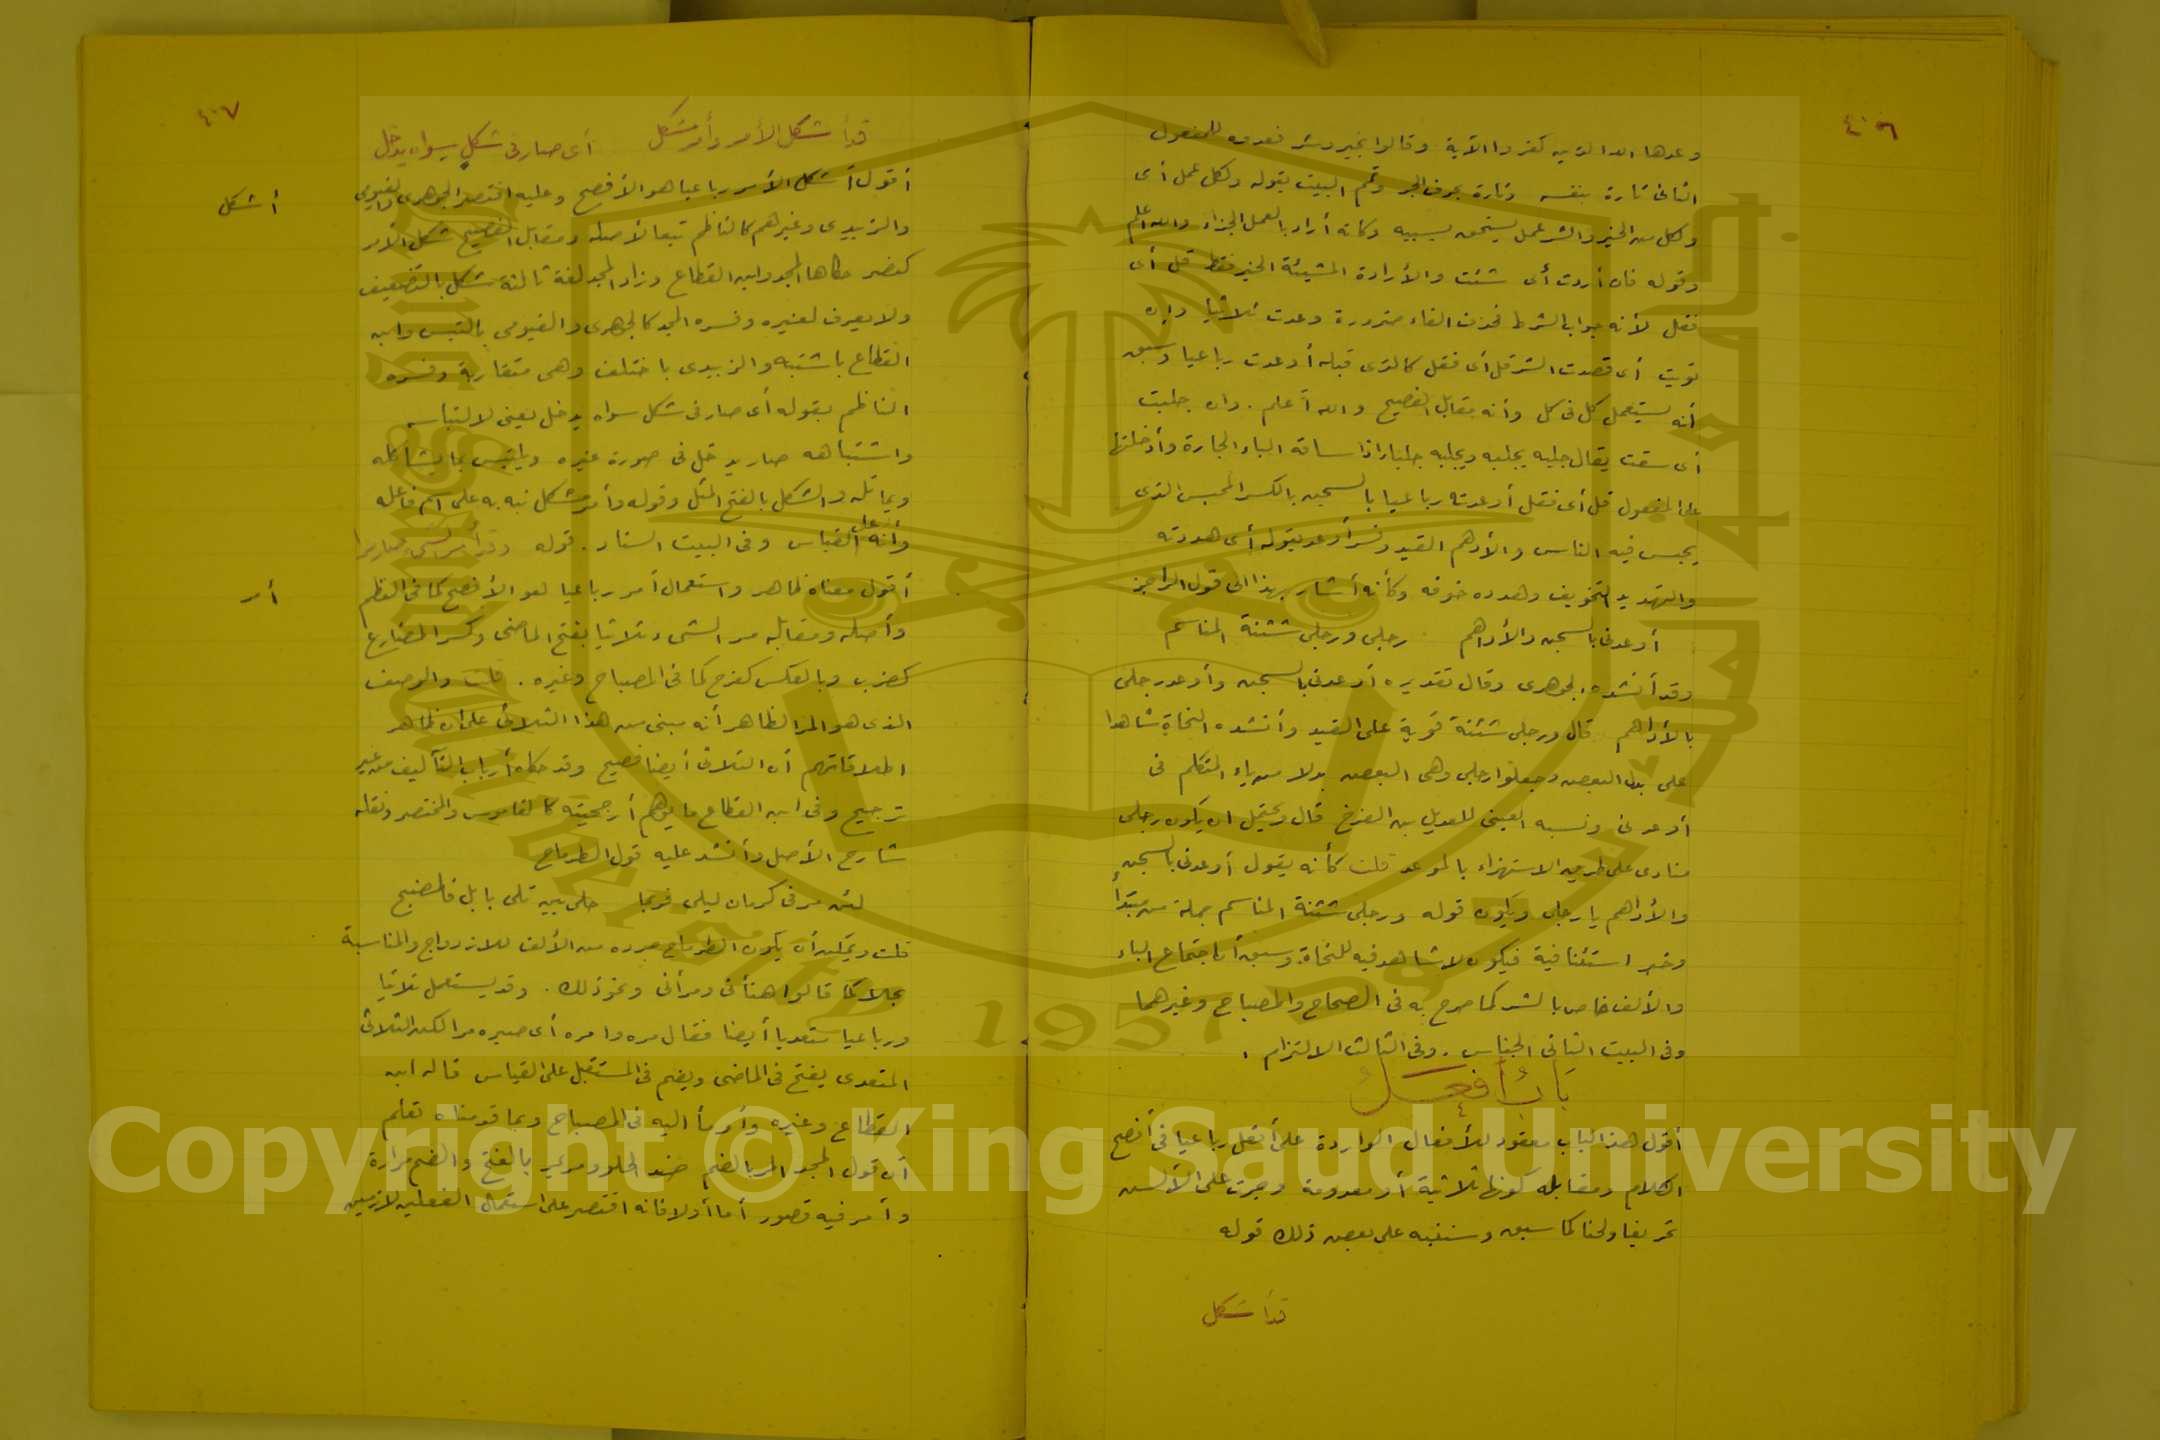 ٤٠٦
وعدها الله الذين كفروا الآية وقالوا بخير وشر فعدوه للمفعول
الثاني تارة بنفسه وتارة بحرف الجر وتمم البيت بقوله ولكل عمل أي
ولكل من الخير والشر عمل يستحق بسببه وكأنه أراد بالعمل الجزاء والله أعلم
وقوله فان أردت أي شئت والأرادة المشيئة الخير فقط قل أي
فقل لأنه جواب الشرط فحذف الفاء ضرورة وعدت ثلاثيا وإن
نويت أي قصدت الشر قل أي فقل كالذي قبله أوعدت رباعيا وسبق
أنه يستعمل كل في كل وأنه مقابل الفصيح والله أعلم . وان جلبت
أي سقت يقال جلبه يجلبه ويجلبه جلبا اذا ساقه الباء الجارة وأدخلتها
على المفعول قل أي فقل أوعدته رباعيا بالسجن بالكسر المحبس الذي
يحبس فيه الناس والأدهم القيد وفسر أوعد بقوله أي هددته
والتهديد التخويف وهدده خوفه وكأنه أشار بهذا الى قول الراجز
أوعدني بالسجن والأداهم رجلي ورجلي شثنة المناسم
وقد أنشده الجوهري وقال تقديره أوعدني بالسجن وأوعد رجلي
بالأداهم قال ورجلي شثنة قوية على القيد وأنشده النحاة شاهدا
على بدل البعض وجعلوا رجلي وهي البعض بدلا من ياء المتكلم في
أوعدني ونسبه العيني للعديل بن الفرخ قال ويحتمل ان يكون رجلي
منادى على طريق الاستهزاء بالموعد قلت كأنه يقول أوعدني بالسجن
والأداهم يا رجلي ويكون قوله ورجلي شثنة المناسم جملة من مبتدأ
وخبر استئنافية فيكون لا شاهد فيه للنحاة وسبق أن اجتماع الباء
والألف خاص بالشر كما صرح به في الصحاح والمصباح وغيرهما
وفي البيت الثاني الجناس . وفي الثالث الالتزام .
باب أفعل
أقول هذا الباب معقود للأفعال الواردة على أفعل رباعيا في أفصح
الكلام ومقابله كونها ثلاثية أو معدومة وجرت على الألسن
تحريفا ولحنا كما سبق وسننبه على بعض ذلك قوله
قد أشكل
٤٠٧
قد أشكل الأمر وأمر مشكل أي صار في شكل سواه يدخل
أشكل
أقول أشكل الأمر رباعيا هو الأفصح وعليه اقتصر الجوهري والفيومي
والزبيدي وغيرهم كالناظم تبعا لأصله ومقابل الفصيح شكل الأمر
كنصر حكاها المجد وابن القطاع وزاد المجد لغة ثالثة شكل بالتضعيف
ولا يعرف لغيره وفسره المجد كالجوهري والفيومي بالتبس وابن
القطاع باشتبه والزبيدي باختلف وهي متقاربة وفسره
الناظم بقوله أي صار في شكل سواه يدخل يعني لالتباسه
واشتباهه صار يدخل في صورة غيره ويلتبس بما يشاكله
ويماثله والشكل بالفتح المثل وقوله وأمر مشكل نبه به على اسم فاعله
وأنه على القياس وفي البيت السناد . قوله وقد أمر الشيء صار مرا
أمر
أقول معناه ظاهر واستعمال أمر رباعيا هو الأفصح كما في النظم
وأصله ومقابله مر الشيء ثلاثيا بفتح الماضي وكسر المضارع
كضرب وبالعكس كفرح كما في المصباح وغيره . قلت والوصف
الذي هو المر الظاهر أنه مبني من هذا الثلاثي على ان ظاهر
اطلاقاتهم أن الثلاثي أيضا فصيح وقد حكاه أرباب التآليف من غير
ترجيح وفي ابن القطاع ما يوهم أرجحيته كالقاموس والمختصر ونقله
شارح الأصل وأنشد عليه قول الطرماح
لئن مر في كرمان ليلي فربما حلى بين تلى بابل فالمضيح
قلت ويمكن أن يكون الطرماح جرده من الألف للازدواج والمناسبة
بحلا كما قالوا هنأني ومرأني ونحو ذلك . وقد يستعمل ثلاثيا
ورباعيا متعديا أيضا فقال مره وامره أي صيره مرا لكن الثلاثي
المتعدي يفتح في الماضي ويضم في المستقبل على القياس قاله ابن
القطاع وغيره وأومأ اليه في المصباح وبما قدمناه تعلم
أن قول المجد المر بالضم ضد الحلو ومر يمر بالفتح والضم مرارة
وأمر فيه قصور أما أولا فانه اقتصر على استعمال الفعلين لازمين
جامعة الملك سعود
KING SAUD UNIVERSITY
1957
Copyright © King Saud University